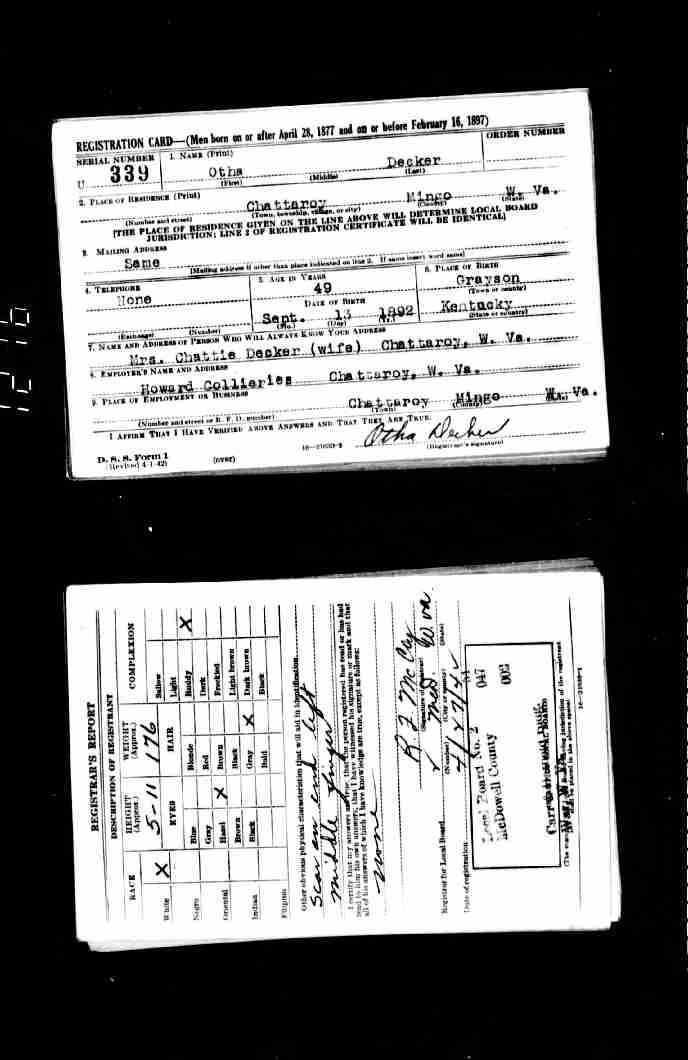 REGISTRATION CARD—(Men born on or after April 28, 1877 and on or before February 16, 1897)
SERIAL NUMBER 1. NAME (Print) ORDER NUMBER
U 339 Otha Decker
(First) (Middle) (Last)
2. PLACE OF RESIDENCE (Print)
Chattaroy Mingo W. Va.
(Number and street) (Town, township, village, or city) (County) (State)
[THE PLACE OF RESIDENCE GIVEN ON THE LINE ABOVE WILL DETERMINE LOCAL BOARD
JURISDICTION; LINE 2 OF REGISTRATION CERTIFICATE WILL BE IDENTICAL]
3. MAILING ADDRESS
Same
[Mailing address if other than place indicated on line 2. If same insert word same]
4. TELEPHONE 5. AGE IN YEARS 6. PLACE OF BIRTH
None 49 Grayson
DATE OF BIRTH (Town or county)
Sept. 13 1892 Kentucky
(Exchange) (Number) (Mo.) (Day) (Yr.) (State or country)
7. NAME AND ADDRESS OF PERSON WHO WILL ALWAYS KNOW YOUR ADDRESS
Mrs. Chattie Decker (wife) Chattaroy, W. Va.
8. EMPLOYER'S NAME AND ADDRESS
Howard Collieries Chattaroy, W. Va.
9. PLACE OF EMPLOYMENT OR BUSINESS
Chattaroy Mingo W. Va.
(Number and street or R. F. D. number) (Town) (County) (State)
I AFFIRM THAT I HAVE VERIFIED ABOVE ANSWERS AND THAT THEY ARE TRUE.
Otha Decker
D. S. S. Form 1
(Revised 4-1-42) (over) 16—21630-2 (Registrant's signature)
REGISTRAR'S REPORT
DESCRIPTION OF REGISTRANT
RACE HEIGHT (Approx.) WEIGHT (Approx.) COMPLEXION
White X 5-11 176 Sallow
EYES HAIR Light
Negro Blue Blonde Ruddy X
Gray Red Dark
Oriental Hazel X Brown Freckled
Brown Black Light brown
Indian Black Gray X Dark brown
Bald Black
Filipino
Other obvious physical characteristics that will aid in identification
Scar on end left
middle finger
I certify that my answers are true; that the person registered has read or has had
read to him his own answers; that I have witnessed his signature or mark and that
all of his answers of which I have knowledge are true, except as follows:
none
(Signature of registrar)
Registrar for Local Board W va
(Number) (City or county) (State)
Date of registration 4/27/42
Local Board No. 2 047
McDowell County 002
16—21630-1